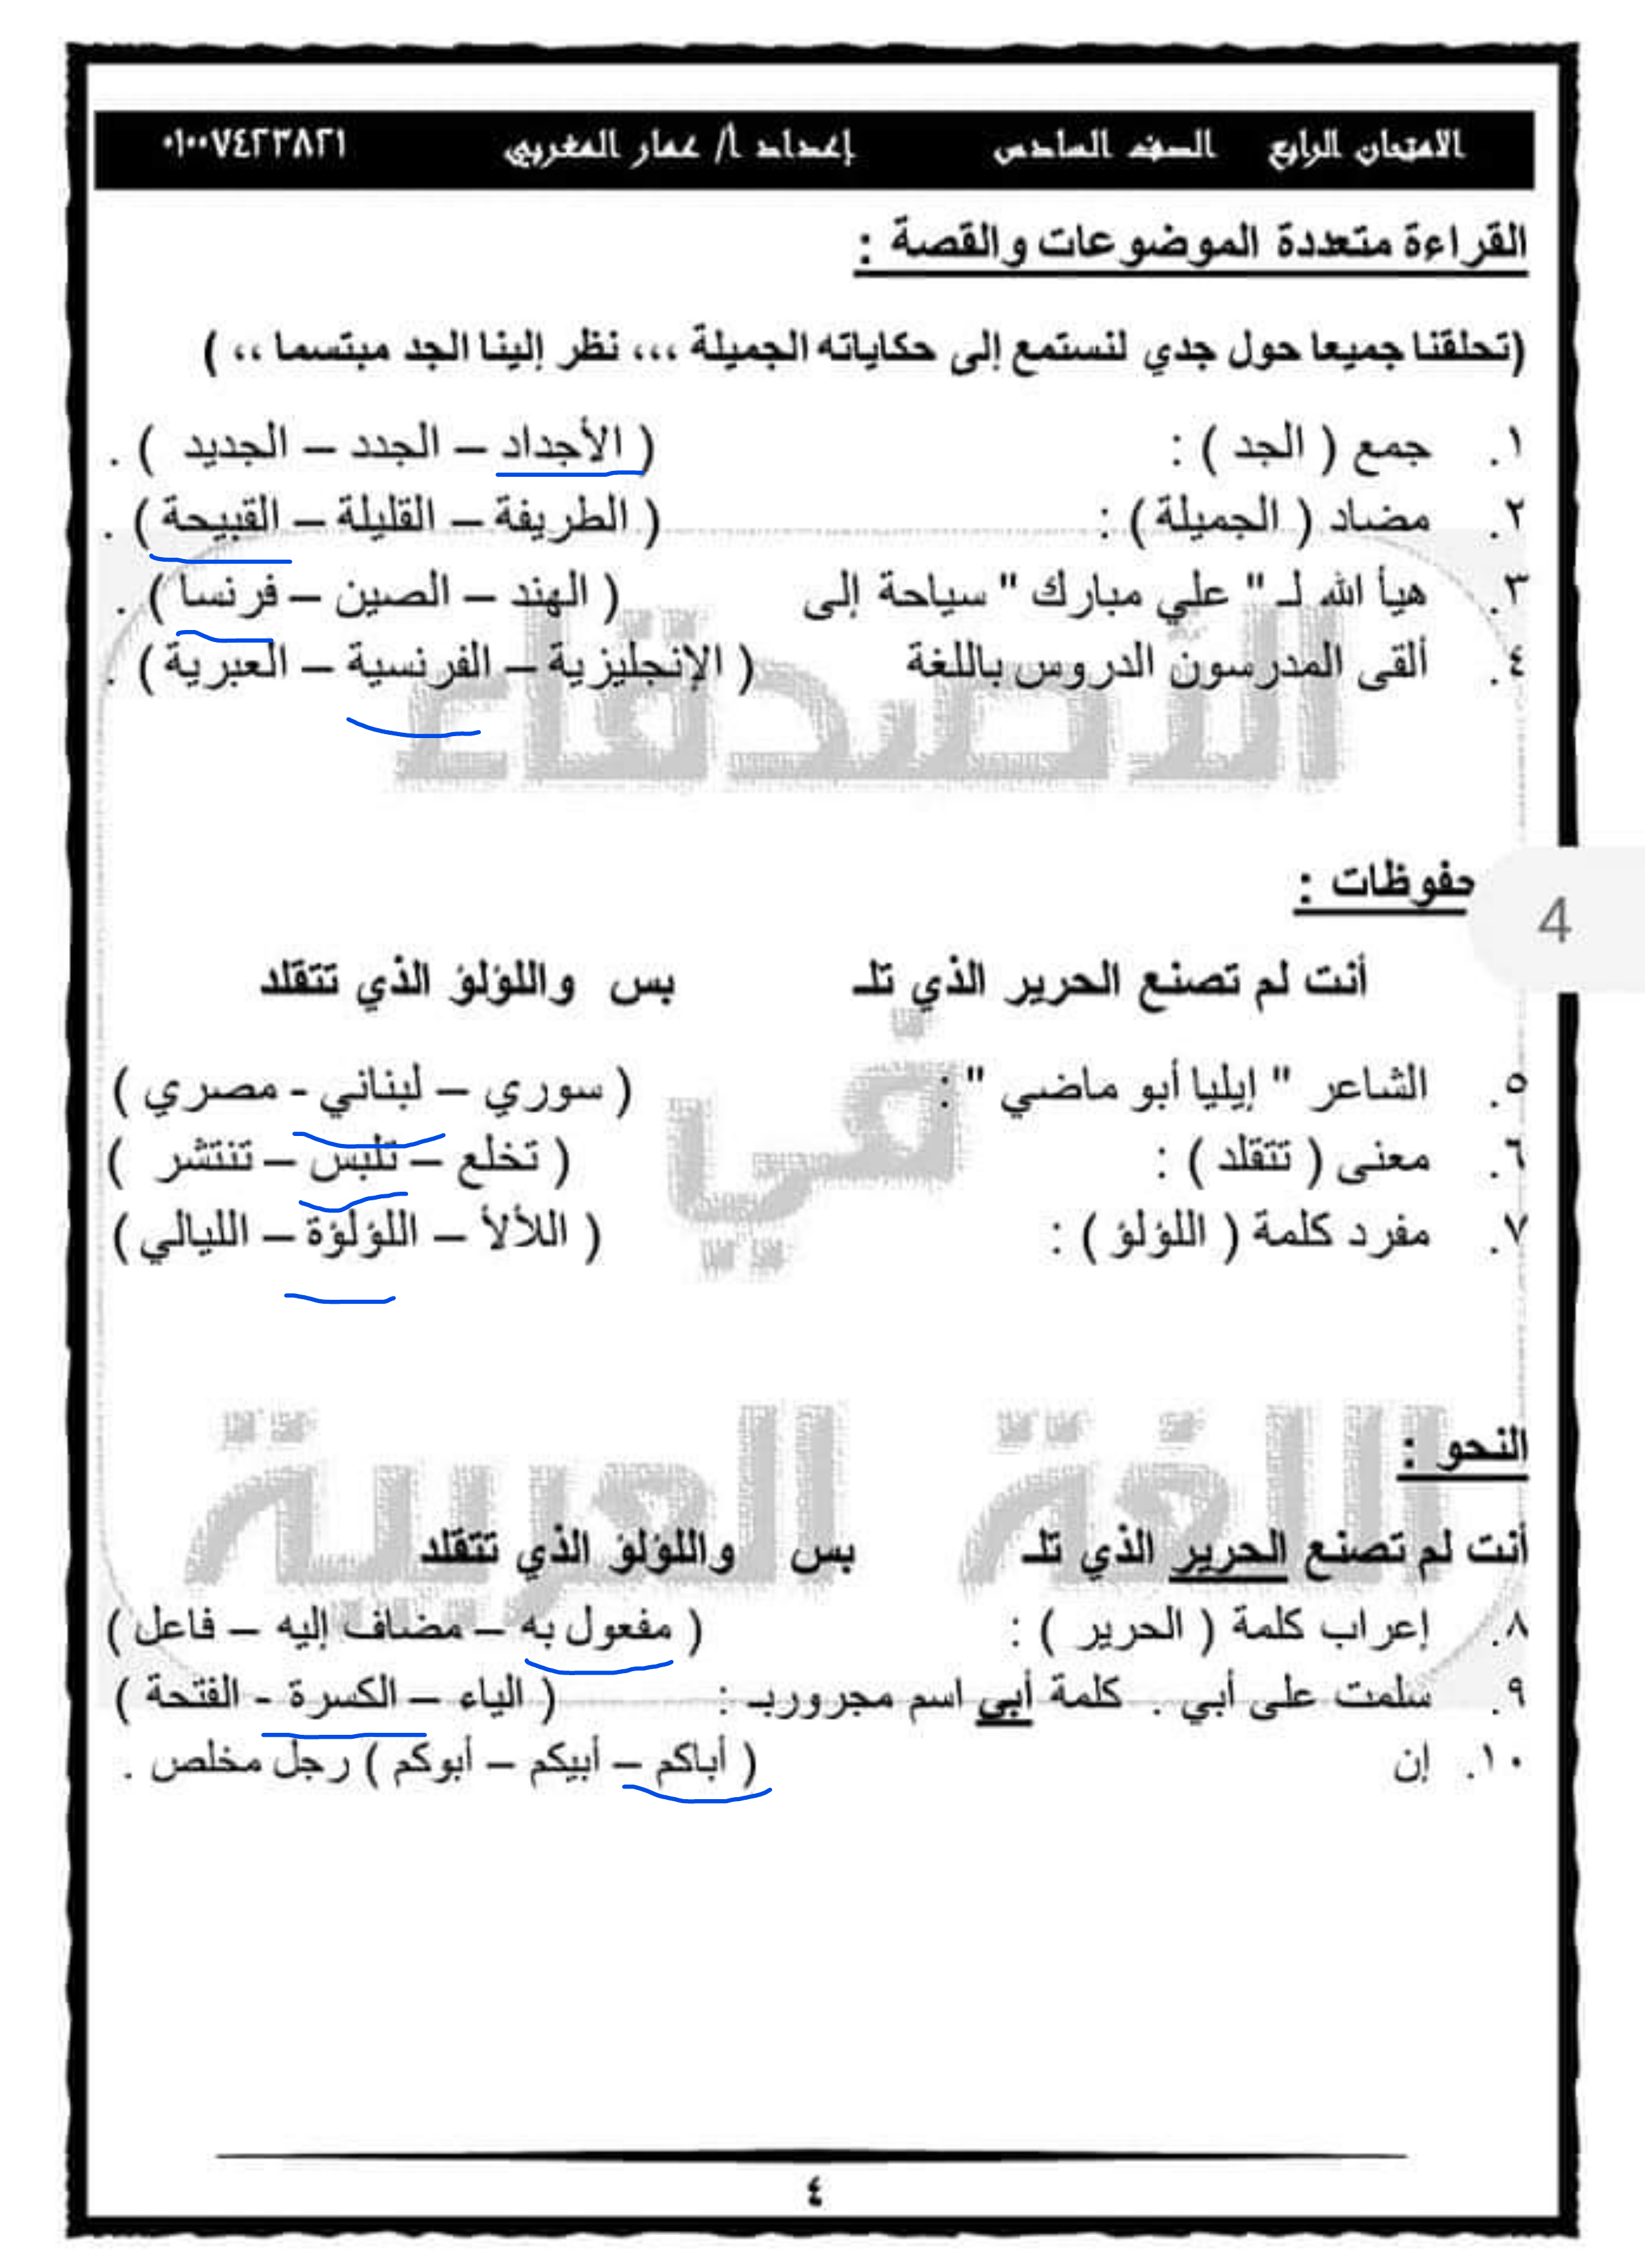 الامتحان الرابع الصف السادس إعداد أ/ عمار المغربي ٠١٠٠٧٤٢٣٨٢١
القراءة متعددة الموضوعات والقصة :
(تحلقنا جميعا حول جدي لنستمع إلى حكاياته الجميلة ،،، نظر إلينا الجد مبتسما ،، )
١. جمع ( الجد ) : ( الأجداد – الجدد – الجديد ) .
٢. مضاد ( الجميلة ) : ( الطريفة – القليلة – القبيحة ) .
٣. هيأ الله لـ " علي مبارك " سياحة إلى ( الهند – الصين – فرنسا ) .
٤. ألقى المدرسون الدروس باللغة ( الإنجليزية – الفرنسية – العبرية ) .
حفوظات :
4
أنت لم تصنع الحرير الذي تلـ بس واللؤلؤ الذي تتقلد
٥. الشاعر " إيليا أبو ماضي " : ( سوري – لبناني - مصري )
٦. معنى ( تتقلد ) : ( تخلع – تلبس – تنتشر )
٧. مفرد كلمة ( اللؤلؤ ) : ( اللألأ – اللؤلؤة – الليالي )
النحو :
أنت لم تصنع الحرير الذي تلـ بس واللؤلؤ الذي تتقلد
٨. إعراب كلمة ( الحرير ) : ( مفعول به – مضاف إليه – فاعل )
٩. سلمت على أبي . كلمة أبي اسم مجروربـ : ( الياء – الكسرة - الفتحة )
١٠. إن ( أباكم – أبيكم – أبوكم ) رجل مخلص .
في
اللغة العربية
٤